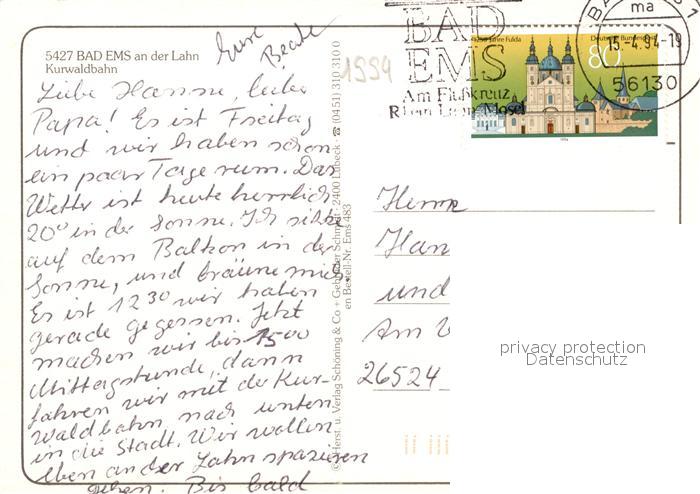 5427 BAD EMS an der Lahn
Kurwaldbahn
Eure
Beate
1994
Liebe Hanne, lieber
Papa! Es ist Freitag
und wir haben schon
ein paar Tage rum. Das
Wetter ist heute herrlich
20° in der Sonne. Ich sitze
auf dem Balkon in der
Sonne, und bräune mich.
Es ist 12 30 wir haben
gerade gegessen. Jetzt
machen wir bis 15 00
Mittagstunde, dann
fahren wir mit der Kur-
waldbahn nach unten
in die Stadt. Wir wollen
eben an der Lahn spazieren
gehen. Bis bald
Herst. u. Verlag Schöning & Co + Gebrüder Schmidt · 2400 Lübeck · ☎ (04 51) 310 310 0
en Bestell-Nr. Ems 483
BAD
EMS
Am Flußkreuz
Rhein Lahn Mosel
1250 Jahre Fulda
Deutsche Bundespost
80
ma
15.-4.94-19
56130
Herrn
Han
und
Am
26524
privacy protection
Datenschutz